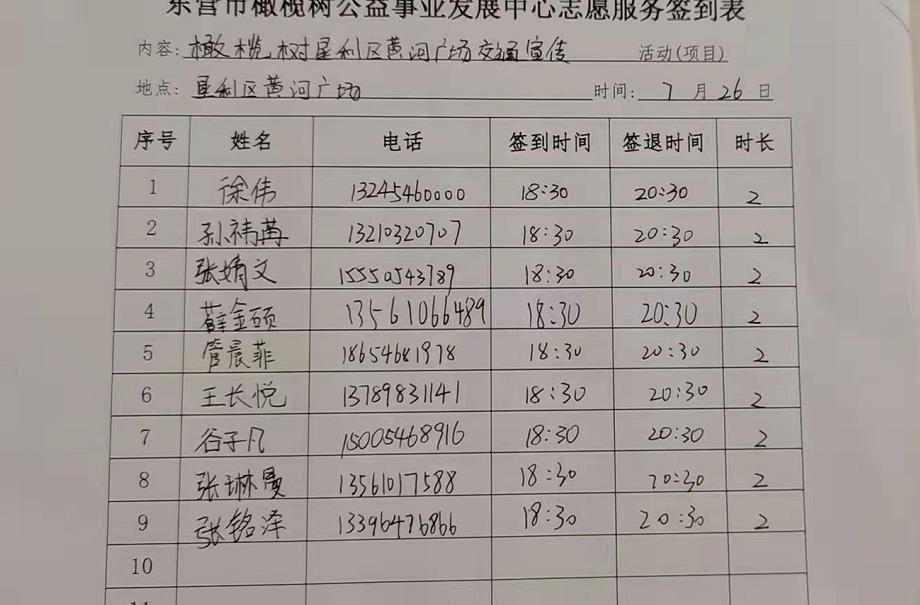 东营市橄榄树公益事业发展中心志愿服务签到表
内容：橄榄树垦利区黄河广场交通宣传 活动(项目)
地点：垦利区黄河广场 时间：7 月 26 日
序号 姓名 电话 签到时间 签退时间 时长
1 徐伟 13245460000 18:30 20:30 2
2 孙祎苒 13210320707 18:30 20:30 2
3 张婧文 15550543789 18:30 20:30 2
4 薛金硕 13561066489 18:30 20:30 2
5 管晨菲 18654681978 18:30 20:30 2
6 王长悦 13789831141 18:30 20:30 2
7 谷子凡 15005468916 18:30 20:30 2
8 张琳曼 13561017588 18:30 20:30 2
9 张铭泽 13396476866 18:30 20:30 2
10